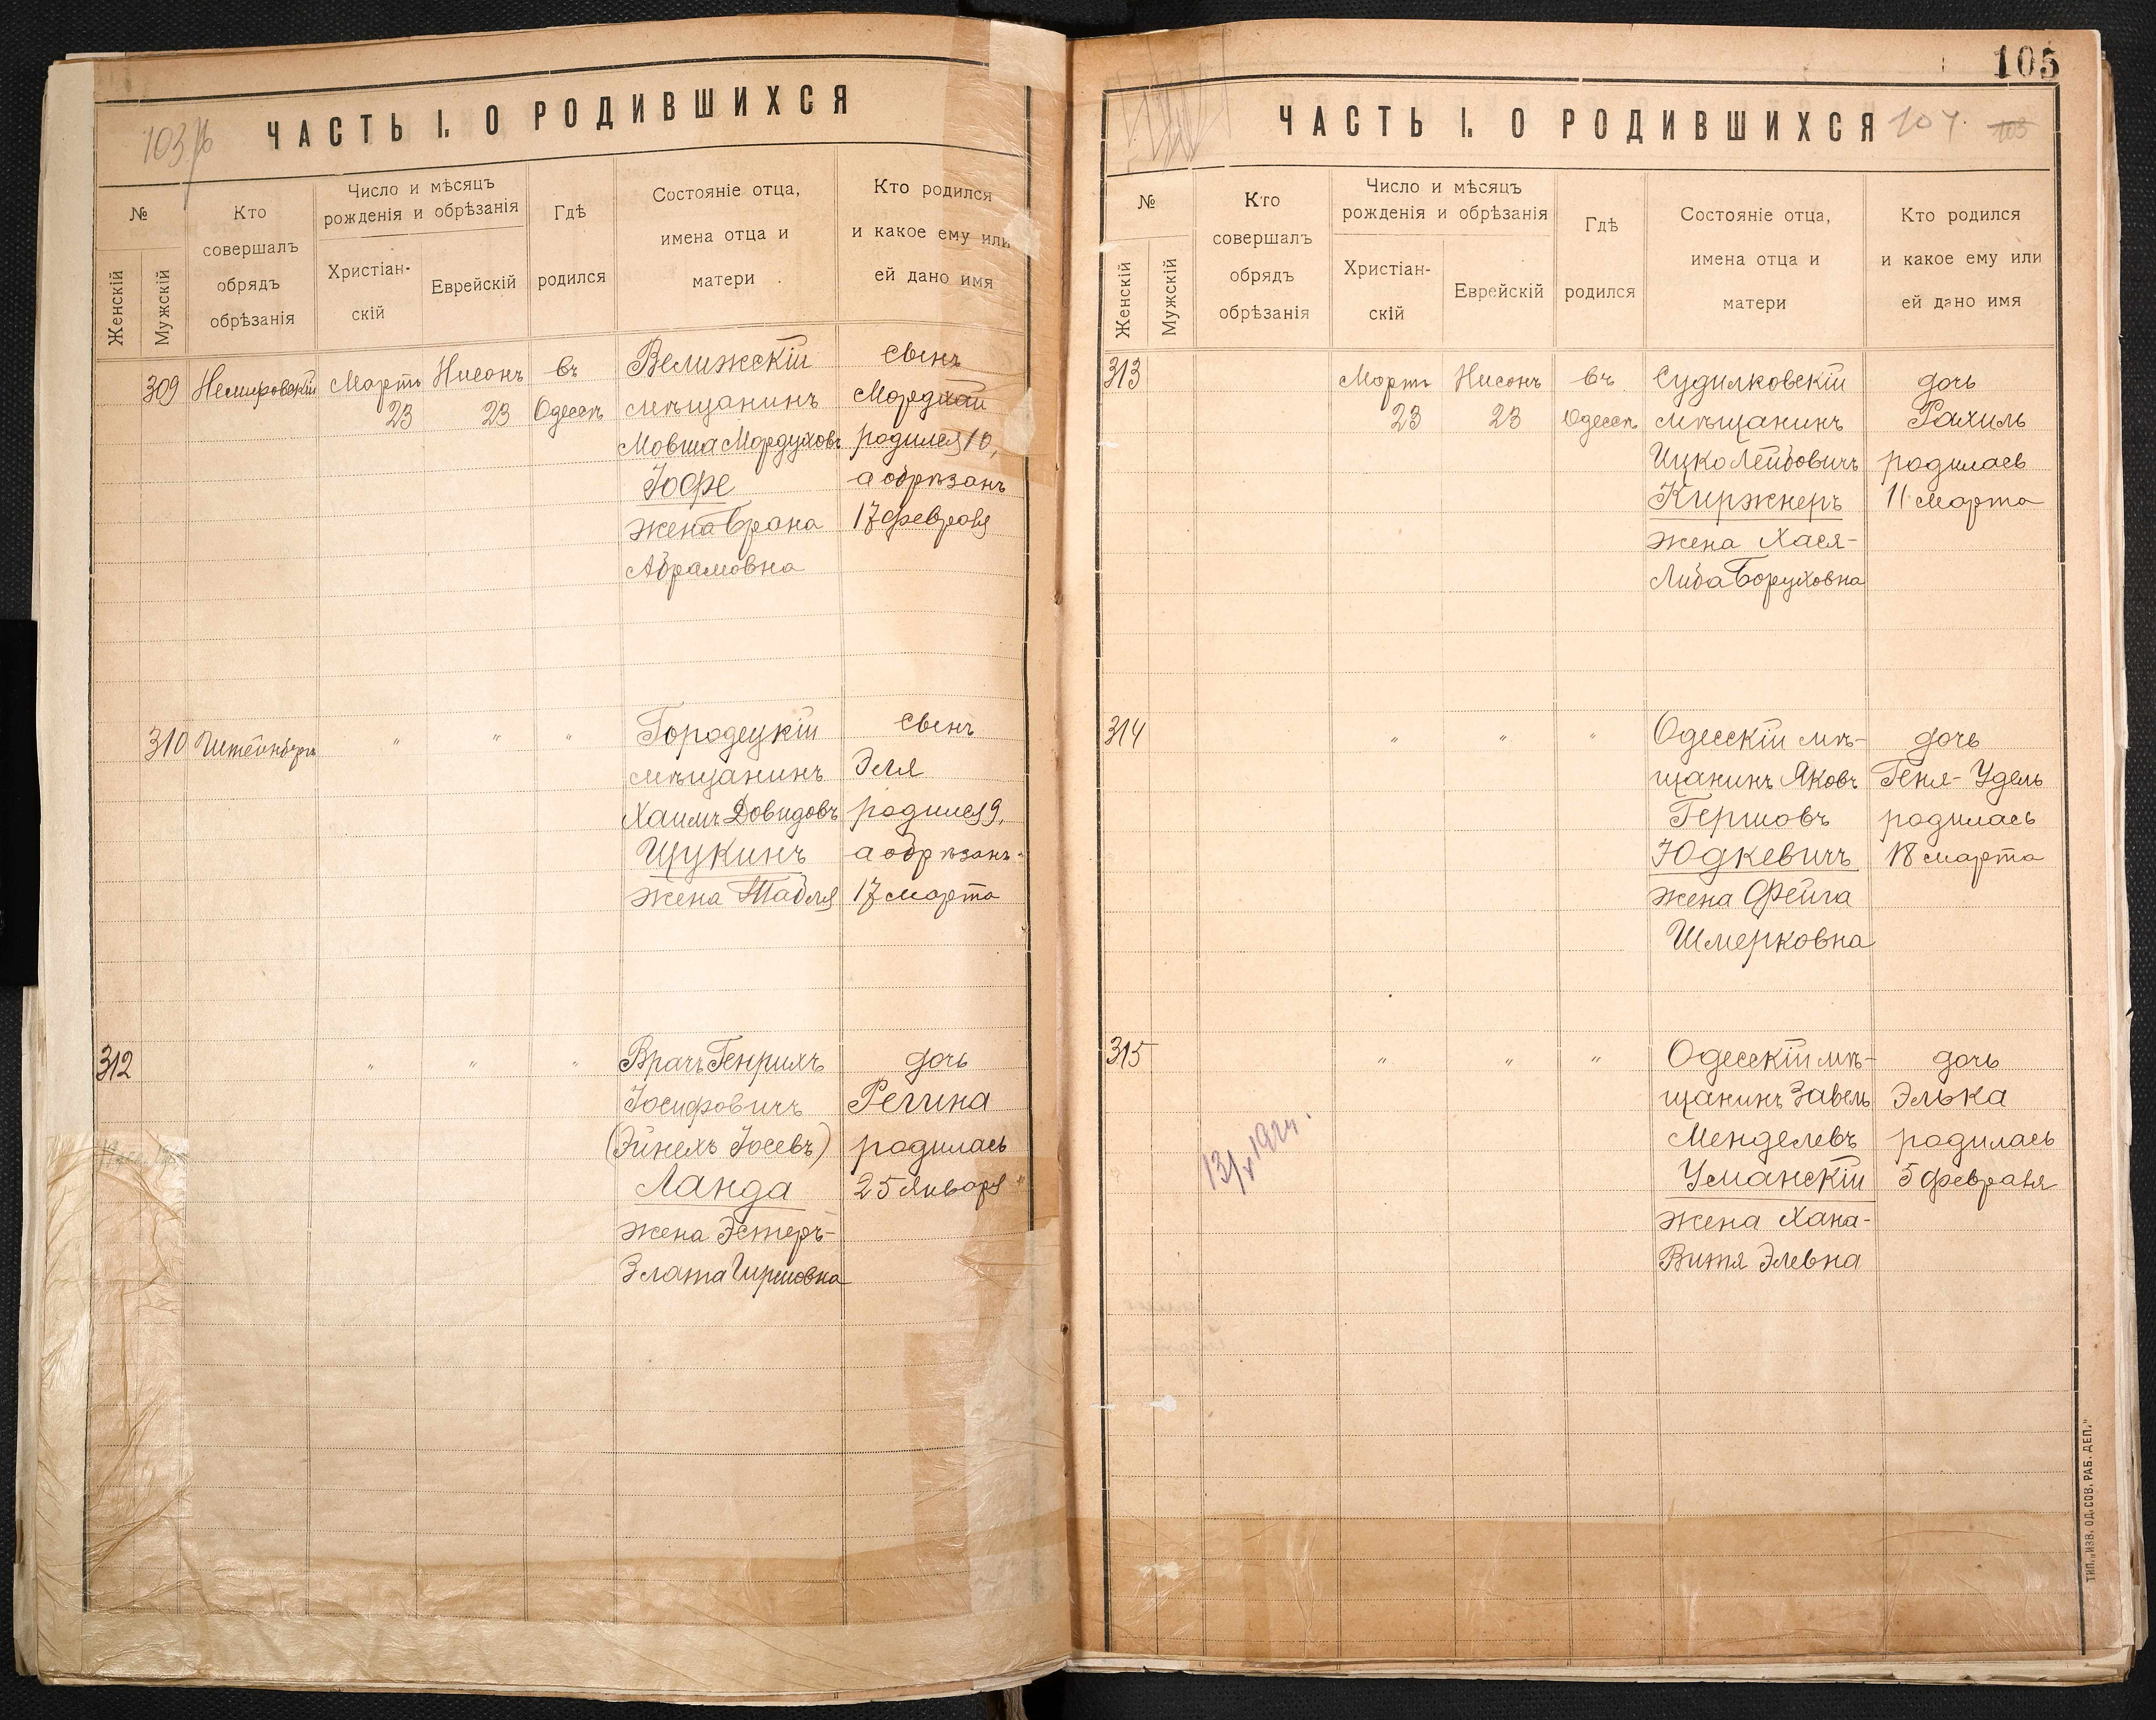 103
ЧАСТЬ I. О РОДИВШИХСЯ
№
Женскій
Мужскій
Кто
совершалъ
обрядъ
обрѣзанія
Число и мѣсяцъ
рожденія и обрѣзанія
Христіан-
скій
Еврейскій
Гдѣ
родился
Состояніе отца,
имена отца и
матери
Кто родился
и какое ему или
ей дано имя
309
Немировскій
Мартъ
23
Нисонъ
23
въ
Одессѣ
Велижскій
мѣщанинъ
Мовша Мордуховъ
Іофе
жена Брана
Абрамовна
сынъ
Мордхай
родился 10,
а обрѣзанъ
17 февраля
310
Штейнбергъ
"
"
"
Городецкій
мѣщанинъ
Хаимъ Довидовъ
Щукинъ
жена Табля
сынъ
Эля
родился 9,
а обрѣзанъ
17 марта
312
"
"
"
Врачъ Генрихъ
Іосифовичъ
(Эйнехъ Іосевъ)
Ланда
жена Эстеръ-
Злата Гиршовна
дочь
Регина
родилась
25 января
105
ЧАСТЬ I. О РОДИВШИХСЯ
104.
103
№
Женскій
Мужскій
Кто
совершалъ
обрядъ
обрѣзанія
Число и мѣсяцъ
рожденія и обрѣзанія
Христіан-
скій
Еврейскій
Гдѣ
родился
Состояніе отца,
имена отца и
матери
Кто родился
и какое ему или
ей дано имя
313
Мартъ
23
Нисонъ
23
въ
Одессѣ
Судилковскій
мѣщанинъ
Ицко Лейбовичъ
Киржнеръ
жена Хася-
Либа Боруховна
дочь
Рахиль
родилась
11 марта
314
"
"
"
Одесскій мѣ-
щанинъ Яковъ
Гершовъ
Юдкевичъ
жена Фейга
Шмерковна
дочь
Геня-Удель
родилась
18 марта
315
"
"
"
Одесскій мѣ-
щанинъ Завель
Менделевъ
Уманскій
жена Хана-
Витя Элевна
дочь
Элька
родилась
5 февраля
13/V 1924.
ТИП. „ИЗВ. ОД. СОВ. РАБ. ДЕП."